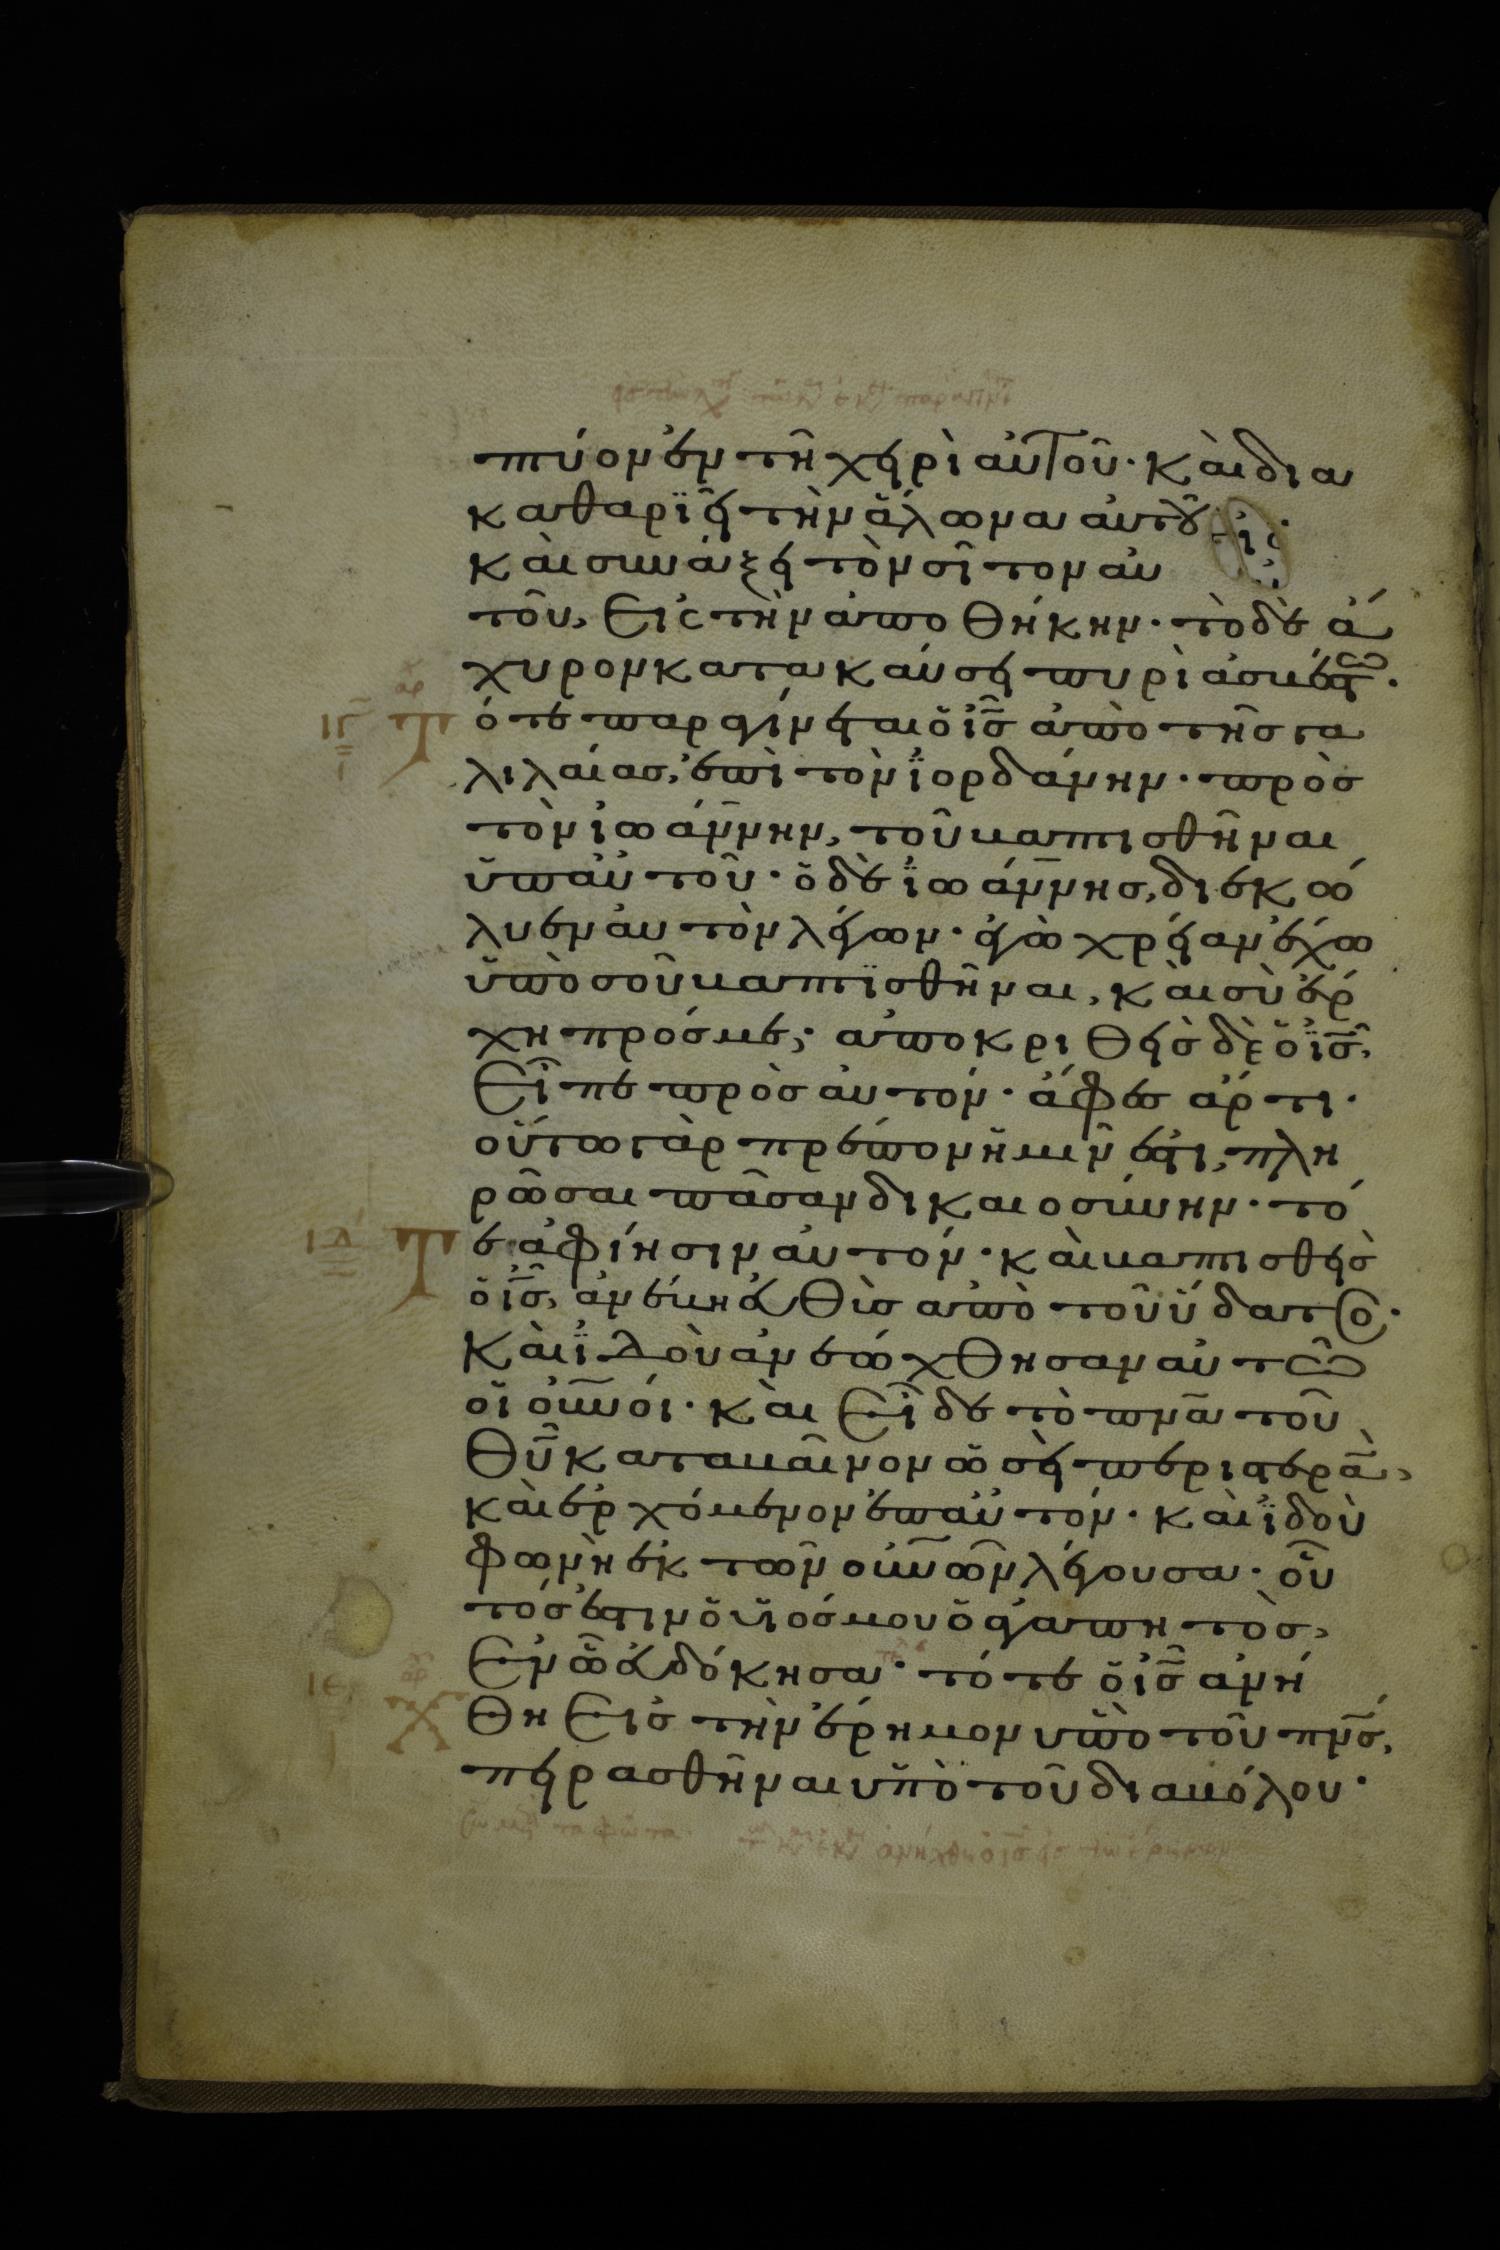 πτύον ἐν τῆ χειρὶ αὐτοῦ· καὶ δια
καθαρϊεῖ τὴν ἅλωνα αὐτοῦ·
καὶ συνάξει τὸν σῖτον αυ
τοῦ, εἰς τὴν ἀποθήκην· τὸ δὲ ἄ
χυρον κατακαύσει πυρὶ ἀσβέστω·
Τότε παραγίνεται ὁ ἰ̅ς̅ ἀπὸ τῆς γα
λιλαίας, ἐπὶ τὸν ἰορδάνην· πρὸς
τὸν ἰωάννην, τοῦ βαπτισθῆναι
ὑπ αὐτοῦ· ὁ δὲ ἰωάννης, διεκώ
λυεν αυτὸν λέγων· ἐγὼ χρείαν ἔχω
ὑπὸ σοῦ βαπτϊσθῆναι, καὶ σὺ ἔρ
χη πρός με; ἀποκριθεὶς δὲ ὁ ἰ̅ς̅,
εἶπε πρὸς αυτόν· ἄφες ἄρτι·
οὕτω γὰρ πρέπον ἡμῖν ἐστι, πλη
ρῶσαι πᾶσαν δικαιοσύνην· τό
Τε ἀφίησιν αυτόν· καὶ βαπτισθεὶς
ὁ ἰ̅ς̅, ἀνέβη εὐθὺς ἀπὸ τοῦ ὕδατος·
καὶ ἰδοὺ ἀνεώχθησαν αὐτῶ
οἱ οὐ̅νοί· καὶ εἶδε τὸ π̅ν̅α̅ τοῦ
θ̅υ̅ καταβαῖνον ὡσεὶ περιστερὰν,
καὶ ἐρχόμενον ἐπ αὐτόν· καὶ ἰδοὺ
φωνὴ ἐκ τῶν οὐ̅νῶν λέγουσα· οὗ
τός ἐστιν ὁ υἱός μου ὁ ἀγαπητὸς,
ἐν ὧ εὐδόκησα· τότε ὁ ἰ̅ς̅ ἀνή
χθη εἰς τὴν ἔρημον υπὸ τοῦ π̅ν̅ς̅,
πειρασθῆναι ὑπὸ τοῦ διαβόλου·